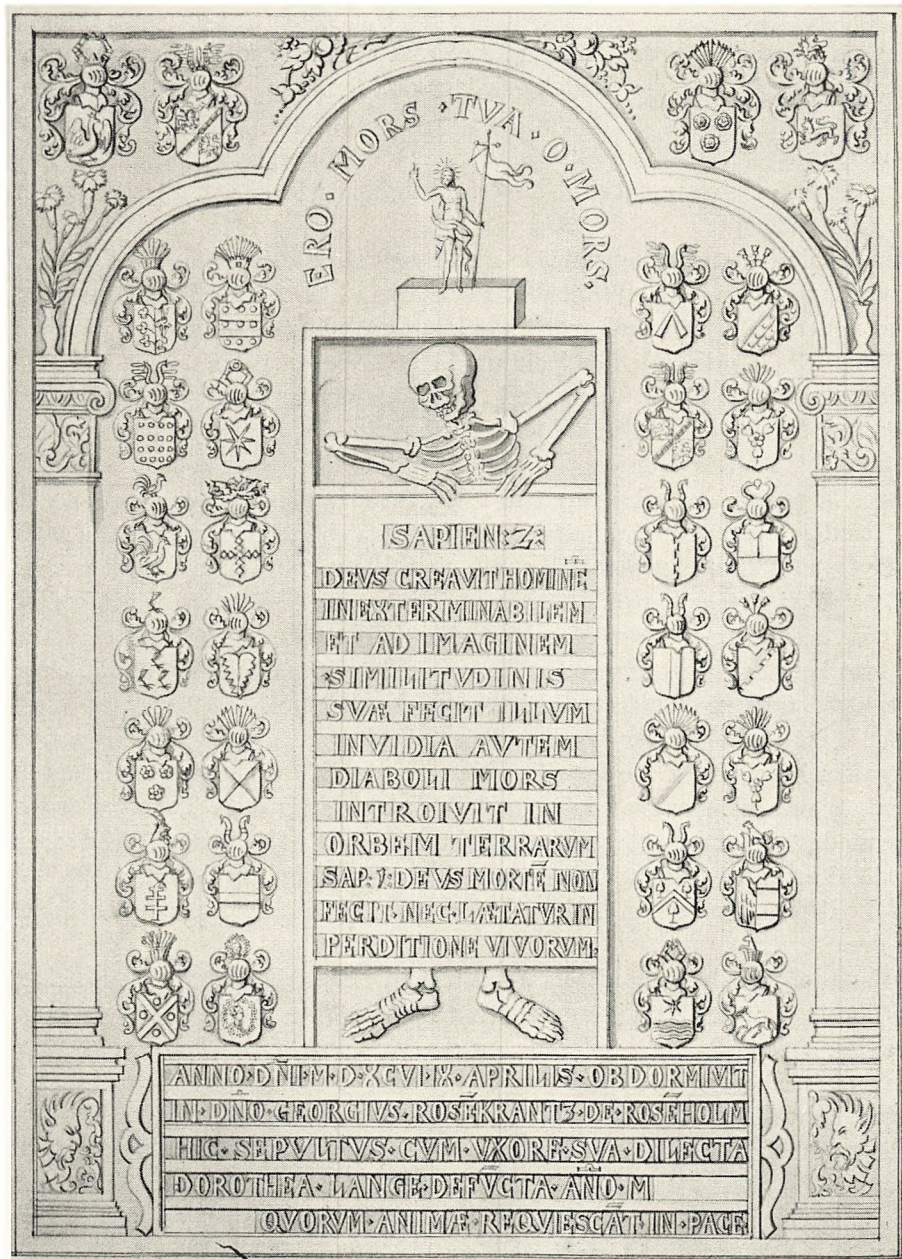 ERO · MORS · TVA · O · MORS,
SAPIEN: 2:
DEVS CREAVIT HOMINĒ
INEXTERMINABILEM
ET AD IMAGINEM
SIMILITVDINIS
SVÆ FECIT ILLVM
INVIDIA AVTEM
DIABOLI MORS
INTROIVIT IN
ORBEM TERRARVM
SAP: 1: DEVS MORTĒ NON
FECIT · NEC · LÆTATVR IN
PERDITIONE VIVORVM ·
ANNO · DN̄I · M · D · XCVI · IX · APRILIS · OBDORMIVIT
IN · DN̄O · GEORGIVS · ROSĒKRANTZ · DE · ROSĒHOLM
HIC · SEPVLTVS · CVM · VXORE · SVA · DILECTA
DOROTHEA · LANGE · DEFV̄CTA · AN̄O · M
QVORVM · ANIMÆ · REQVIESCĀT · IN · PACE